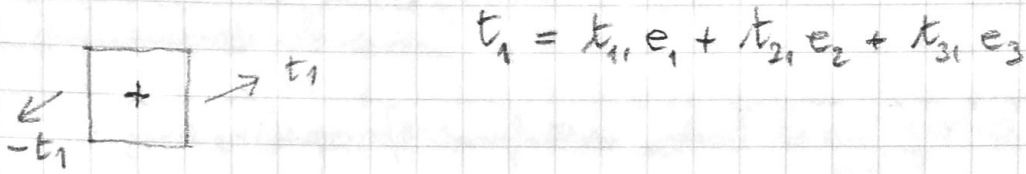 t₁ = t₁₁ e₁ + t₂₁ e₂ + t₃₁ e₃
+
t₁
-t₁